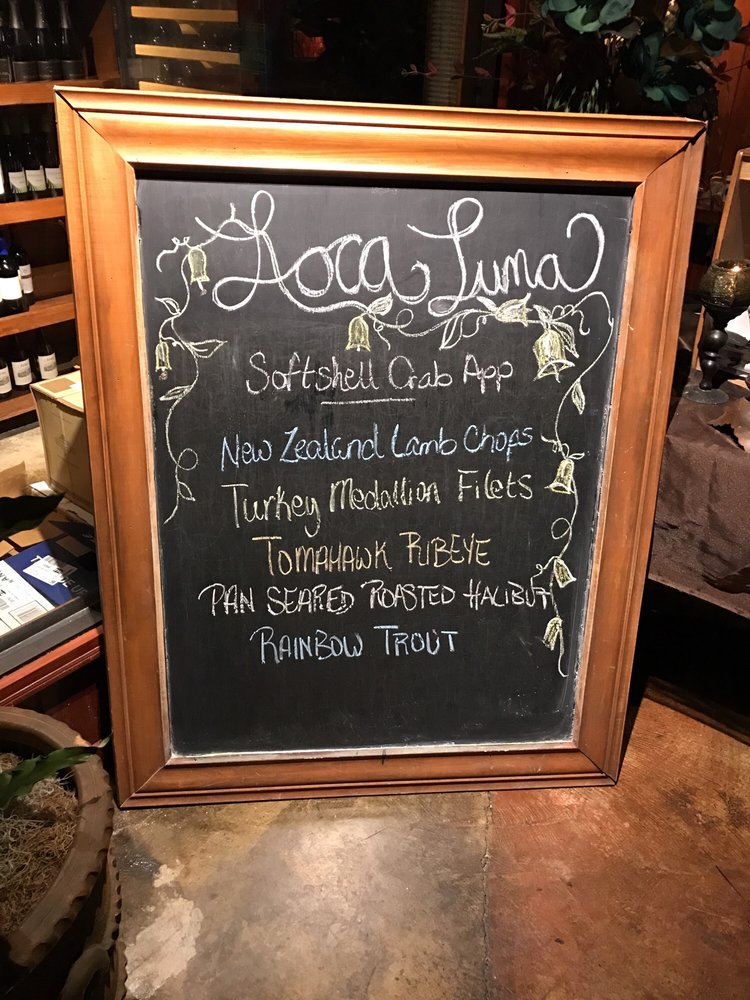 Loca Luna
Softshell Crab App
New Zealand Lamb Chops
Turkey Medallion Filets
TOMAHAWK RIBEYE
PAN SEARED ROASTED HALIBUT
RAINBOW TROUT